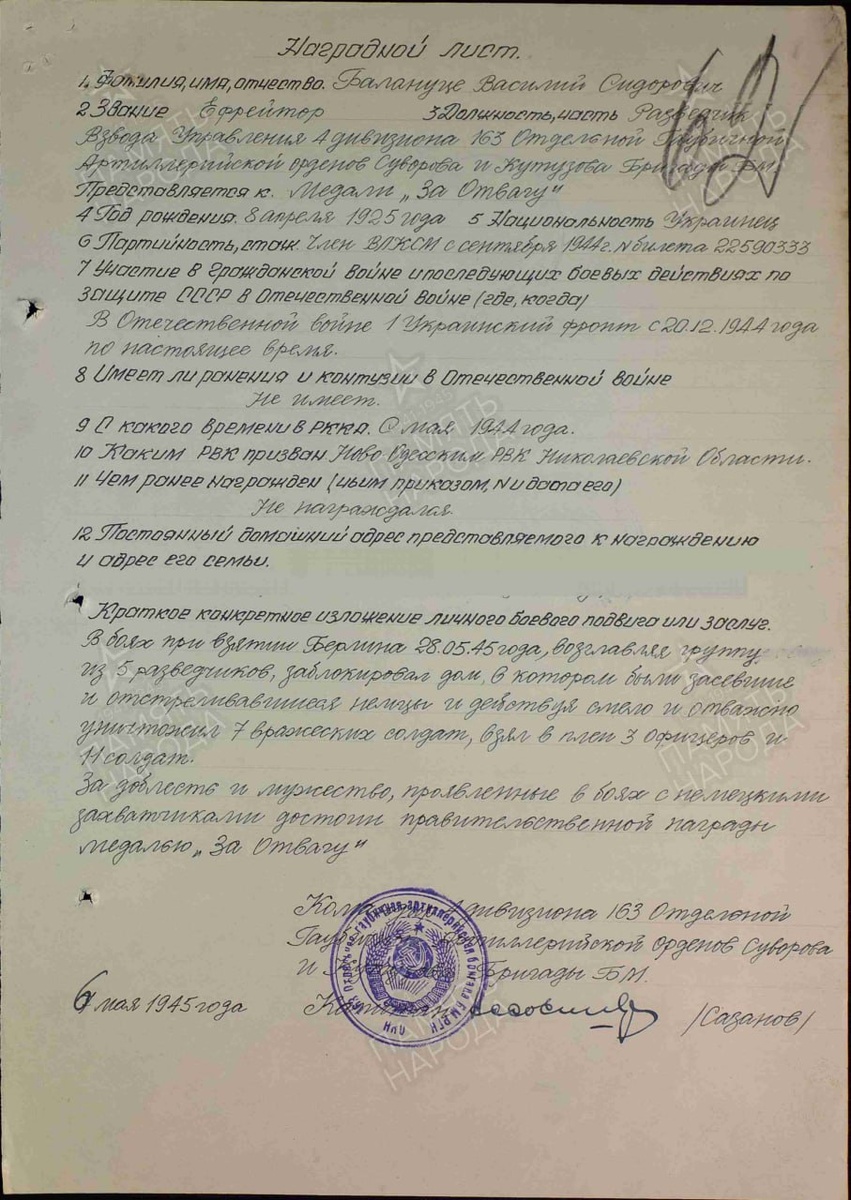 Наградной лист.
1. Фамилия, имя, отчество. Балануце Василий Сидорович
2 Звание Ефрейтор 3 Должность, часть Разведчик
Взвода Управления 4 дивизиона 163 Отдельной Гаубичной
Артиллерийской орденов Суворова и Кутузова Бригады БМ.
Представляется к. Медали „За Отвагу"
4 Год рождения. 8 апреля 1925 года 5 Национальность Украинец
6 Партийность, стаж. Член ВЛКСМ с сентября 1944г. N билета 22590333
7 Участие в Гражданской войне и последующих боевых действиях по
защите СССР в Отечественной войне (где, когда)
В Отечественной войне 1 Украинский фронт с 20.12.1944 года
по настоящее время.
8 Имеет ли ранения и контузии в Отечественной войне
Не имеет.
9 С какого времени в РККА. С мая 1944 года.
10 Каким РВК призван Ново Одесским РВК Николаевской Области.
11 Чем ранее награжден (чьим приказом, N и дата его)
Не награждался.
12 Постоянный домашний адрес представляемого к награждению
и адрес его семьи.
Краткое конкретное изложение личного боевого подвига или заслуг.
В боях при взятии Берлина 28.05.45 года, возглавляя группу
из 5 разведчиков, заблокировал дом, в котором были засевшие
и отстреливавшиеся немцы и действуя смело и отважно
уничтожил 7 вражеских солдат, взял в плен 3 офицеров и
11 солдат.
За доблесть и мужество, проявленные в боях с немецкими
захватчиками достоин правительственной награды
медалью „За Отвагу"
4 дивизиона 163 Отдельной
Артиллерийской Орденов Суворова
и Бригады БМ.
6 мая 1945 года Капитан /Сазанов/
ПАМЯТЬ НАРОДА